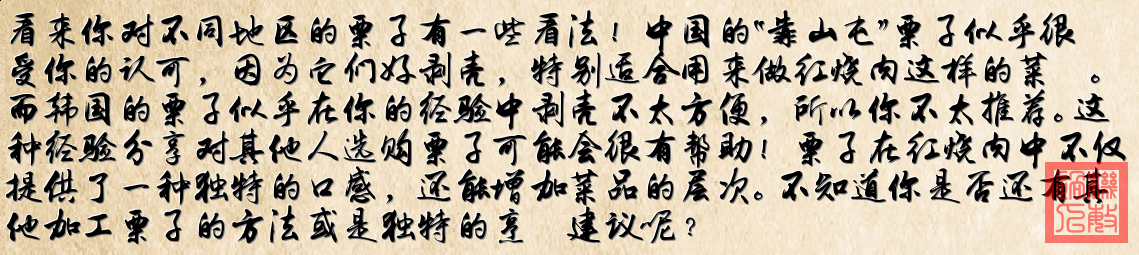 看来你对不同地区的栗子有一些看法！中国的“靠山屯”栗子似乎很
受你的认可，因为它们好剥壳，特别适合用来做红烧肉这样的菜 。
而韩国的栗子似乎在你的经验中剥壳不太方便，所以你不太推荐。这
种经验分享对其他人选购栗子可能会很有帮助！栗子在红烧肉中不仅
提供了一种独特的口感，还能增加菜品的层次。不知道你是否还有其
他加工栗子的方法或是独特的烹 建议呢？